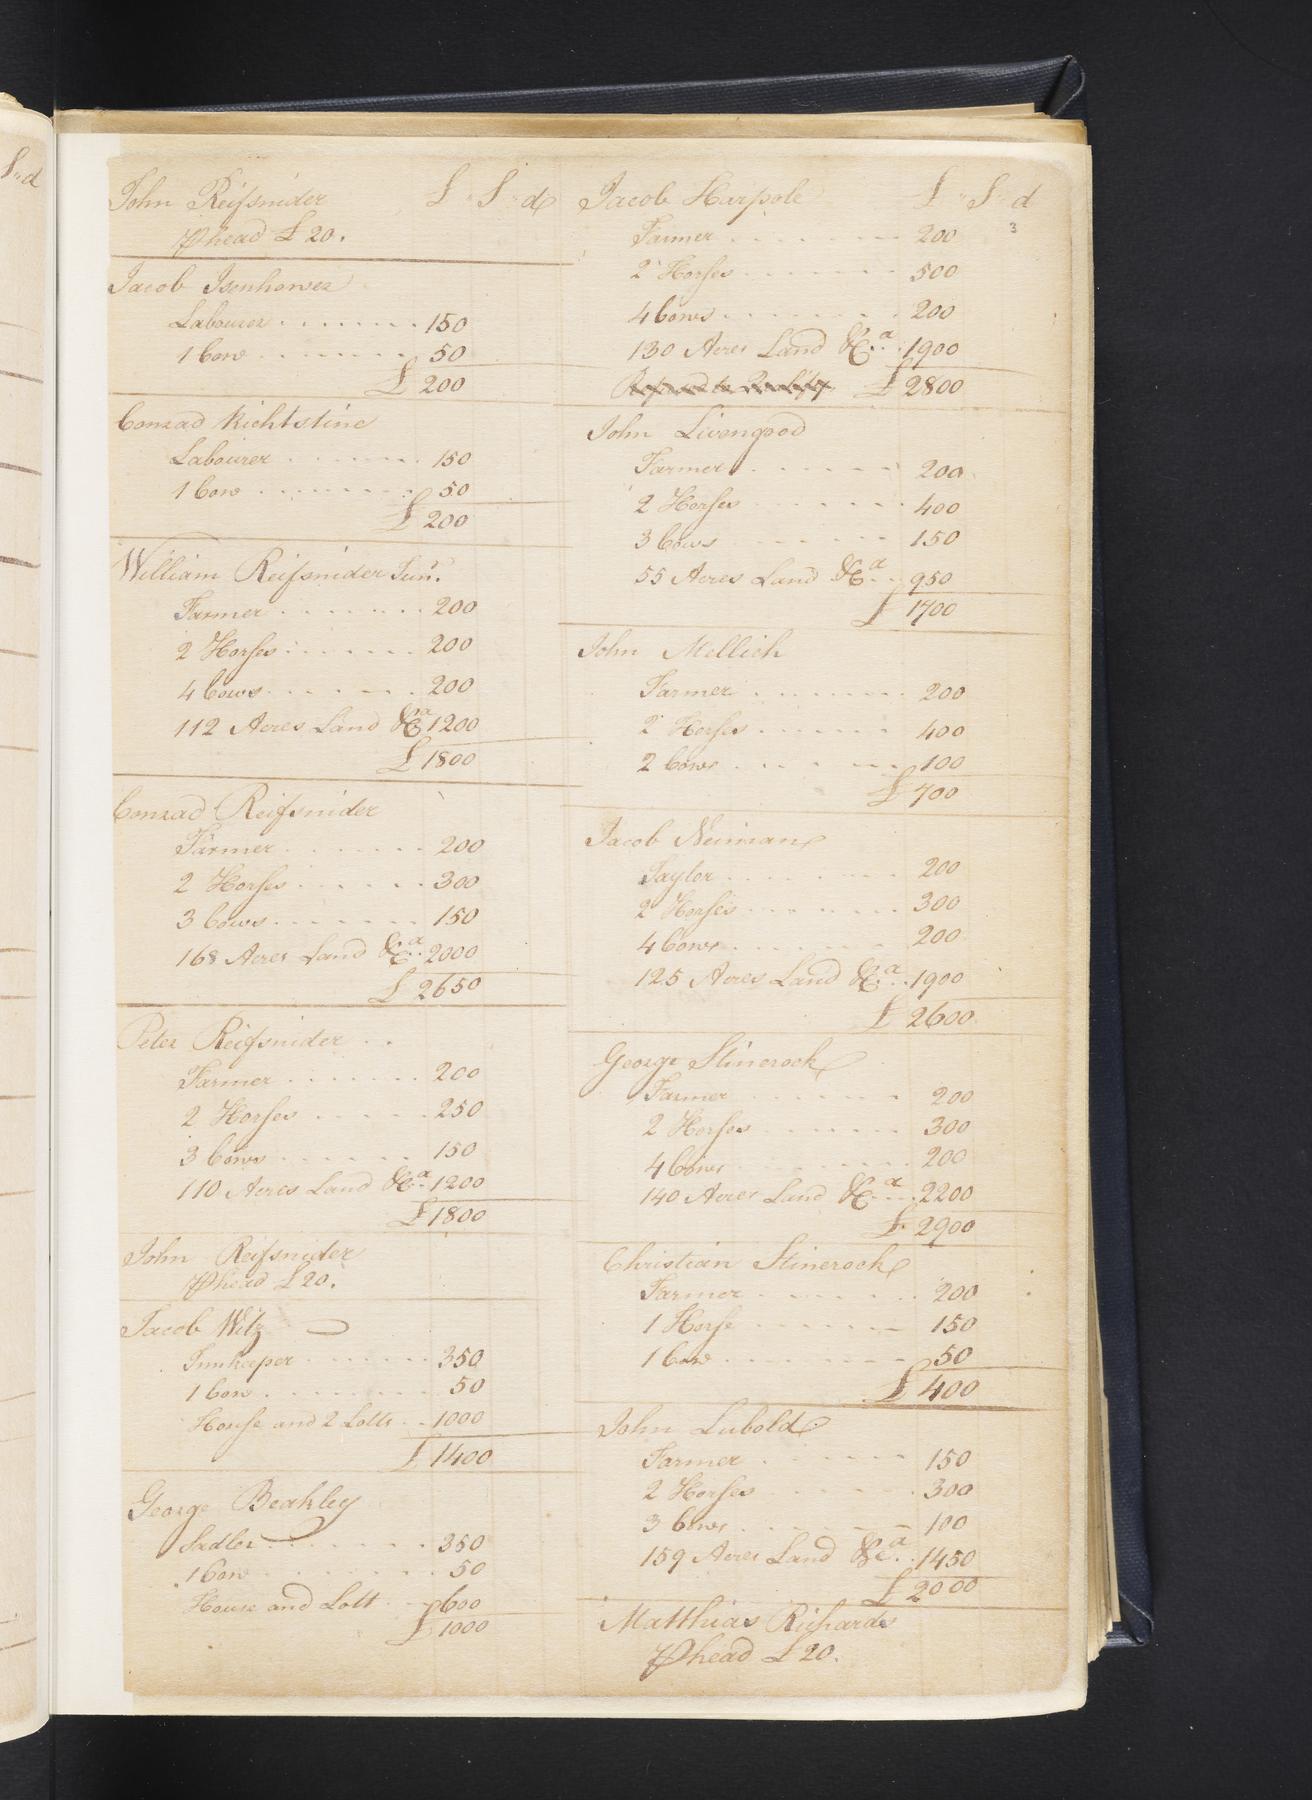 S " d
John Reifsnider £ " S " d
P head £ 20.
Jacob Isenhower
Labourer 150
1 Cow 50
£ 200
Conrad Richtstine
Labourer 150
1 Cow 50
£ 200
William Reifsnider Junr.
Farmer 200
2 Horses 200
4 Cows 200
112 Acres Land &ca 1200
£ 1800
Conrad Reifsnider
Farmer 200
2 Horses 300
3 Cows 150
168 Acres Land &ca 2000
£ 2650
Peter Reifsnider
Farmer 200
2 Horses 250
3 Cows 150
110 Acres Land &ca 1200
£ 1800
John Reifsnider
P head £ 20.
Jacob Witz
Innkeeper 350
1 Cow 50
House and 2 Lotts 1000
£ 1400
George Beakley
Sadler 350
1 Cow 50
House and Lott 600
£ 1000
Jacob Harpole £ " S " d
3
Farmer 200
2 Horses 500
4 Cows 200
130 Acres Land &ca 1900
£ 2800
John Livengood
Farmer 200
2 Horses 400
3 Cows 150
55 Acres Land &ca 950
£ 1700
John Mellich
Farmer 200
2 Horses 400
2 Cows 100
£ 700
Jacob Neiman
Taylor 200
2 Horses 300
4 Cows 200
125 Acres Land &ca 1900
£ 2600
George Stinerock
Farmer 200
2 Horses 300
4 Cows 200
140 Acres Land &ca 2200
£ 2900
Christian Stinerock
Farmer 200
1 Horse 150
1 Cow 50
£ 400
John Lubold
Farmer 150
2 Horses 300
3 Cows 100
159 Acres Land &ca 1450
£ 2000
Matthias Richards
P head £ 20.